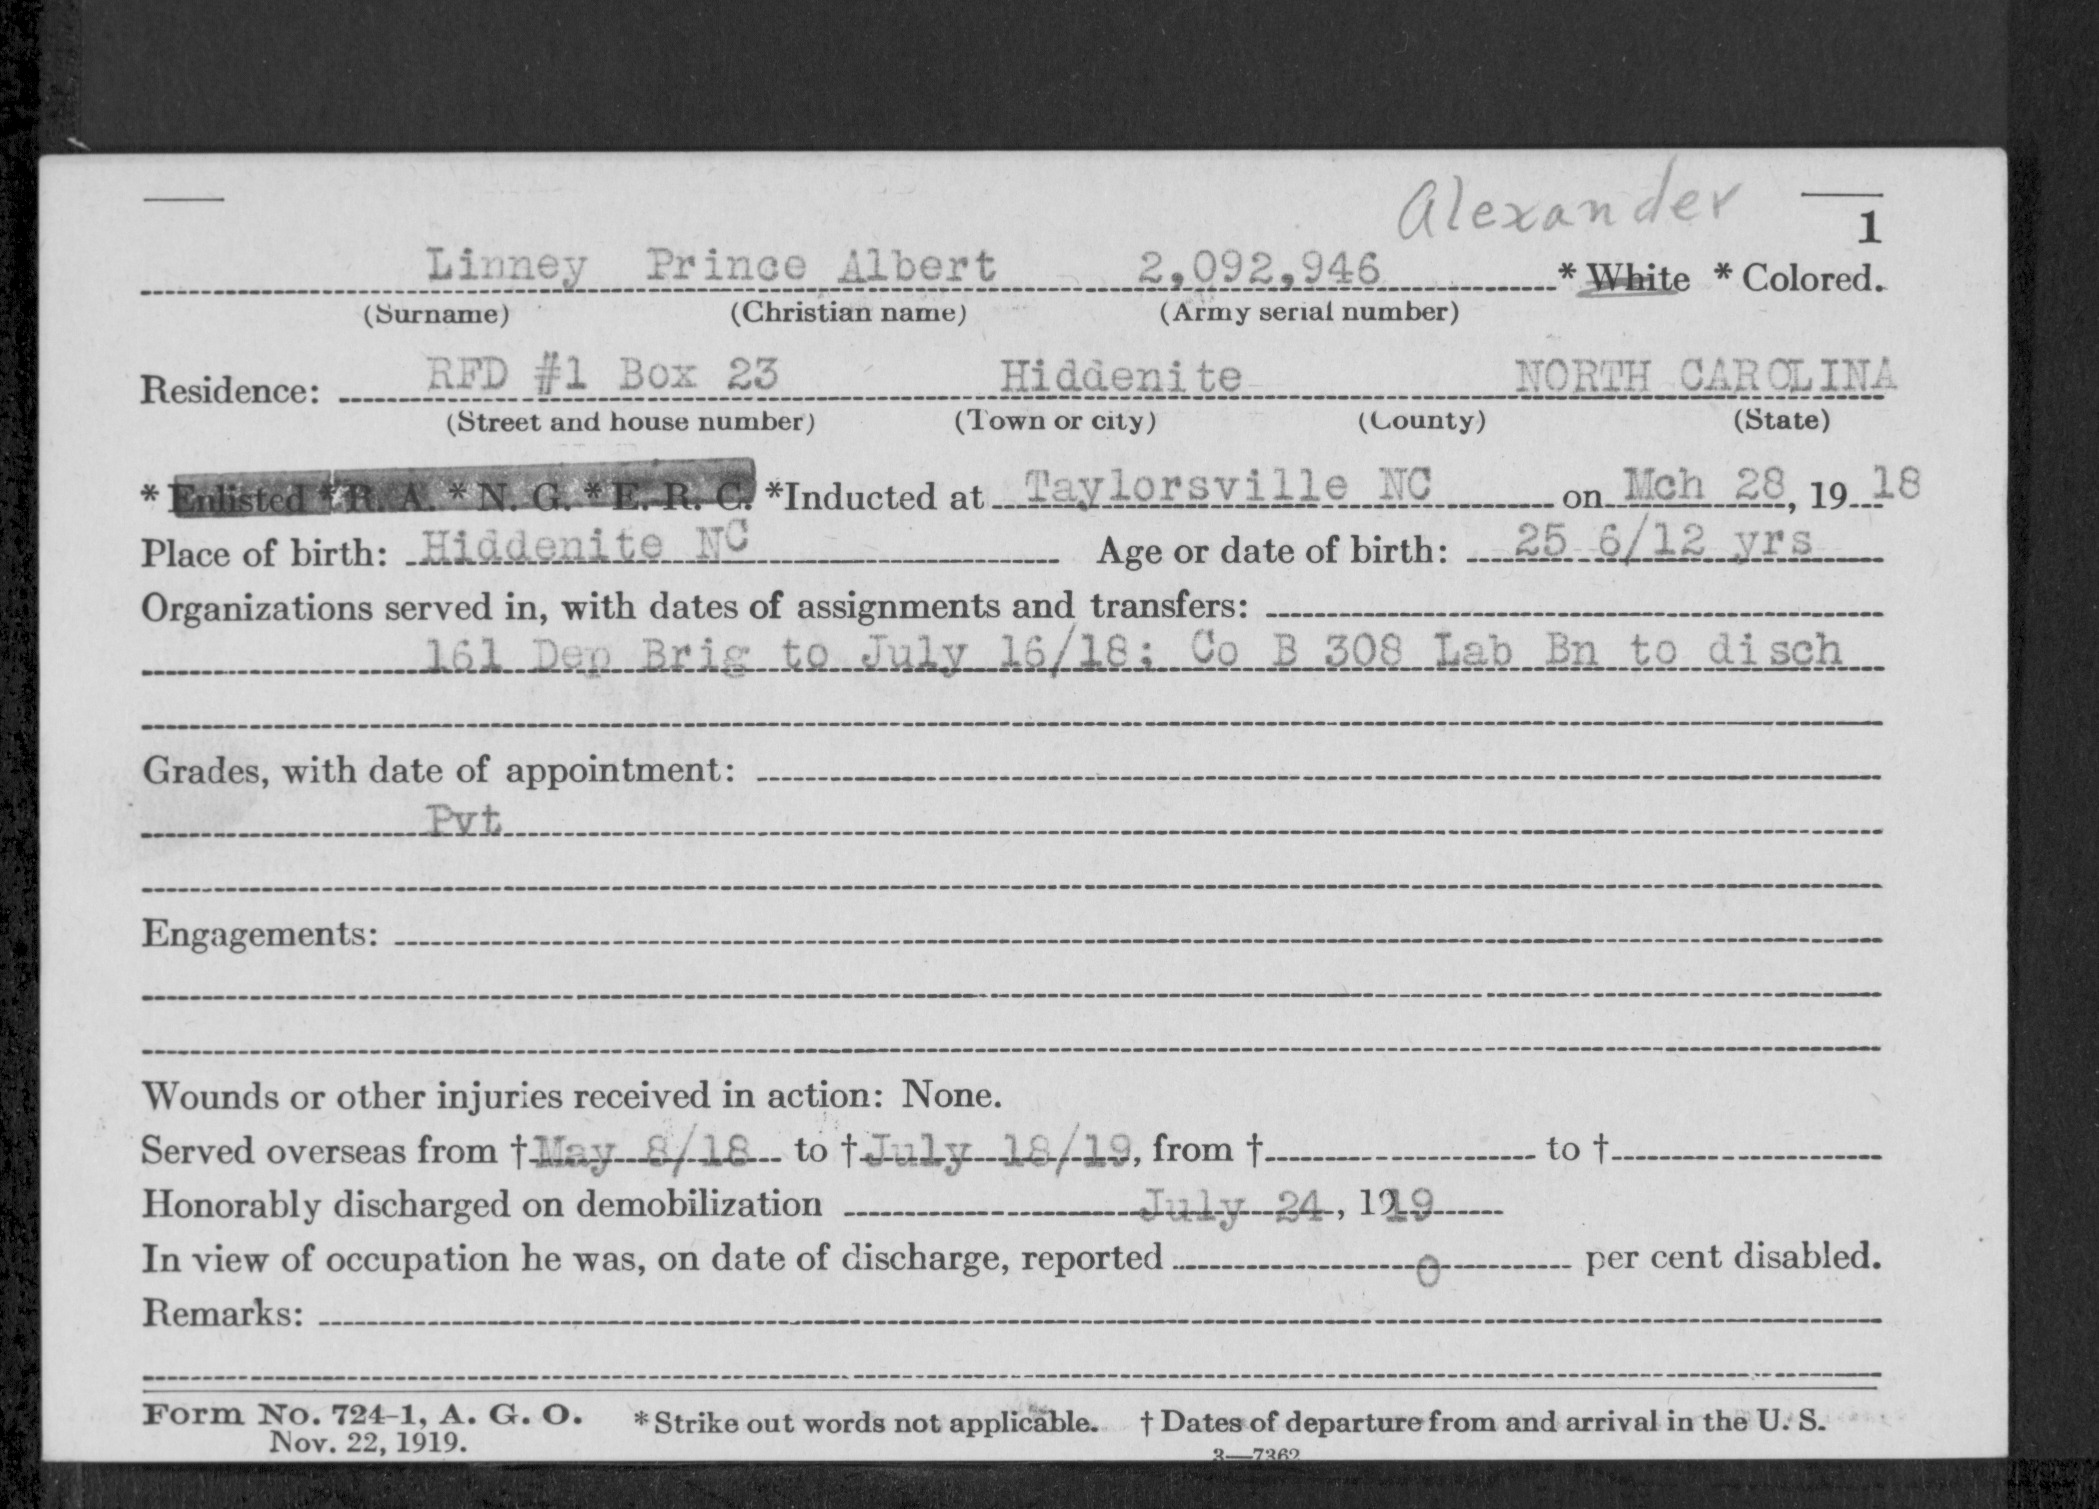 Alexander
1
Linney Prince Albert 2,092,946 * White * Colored.
(Surname) (Christian name) (Army serial number)
Residence: RFD #1 Box 23 Hiddenite NORTH CAROLINA
(Street and house number) (Town or city) (County) (State)
* Enlisted * R. A. * N. G. * E. R. C. *Inducted at Taylorsville NC on Mch 28, 19 18
Place of birth: Hiddenite NC Age or date of birth: 25 6/12 yrs
Organizations served in, with dates of assignments and transfers:
161 Dep Brig to July 16/18; Co B 308 Lab Bn to disch
Grades, with date of appointment:
Pvt
Engagements:
Wounds or other injuries received in action: None.
Served overseas from † May 8/18 to † July 18/19, from † to †
Honorably discharged on demobilization July 24, 1919
In view of occupation he was, on date of discharge, reported 0 per cent disabled.
Remarks:
Form No. 724-1, A. G. O. * Strike out words not applicable. † Dates of departure from and arrival in the U. S.
Nov. 22, 1919.
3—7362